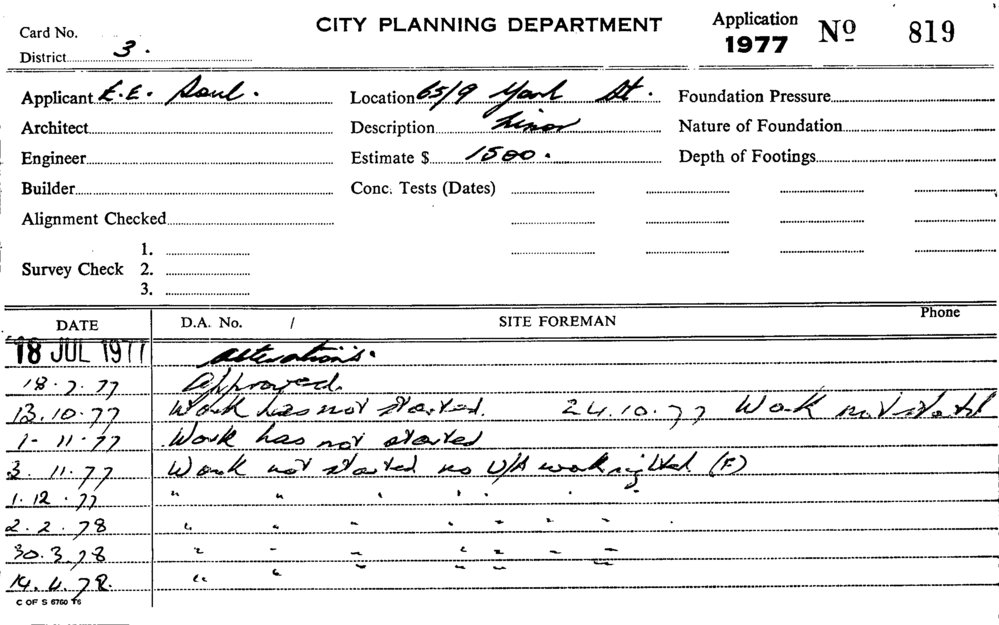 CITY PLANNING DEPARTMENT
Application 1977 Nº 819
Card No.
District 3.
Applicant E.E. Saul.
Location 65/9 York St.
Foundation Pressure
Architect
Description Minor
Nature of Foundation
Engineer
Estimate $ 1500.
Depth of Footings
Builder
Conc. Tests (Dates)
Alignment Checked
Survey Check 1. 2. 3.
DATE D.A. No. / SITE FOREMAN Phone
18 JUL 1977 Alterations.
18.7.77 Approved.
13.10.77 Work has not started. 24.10.77 Work not started
1-11.77 Work has not started
3.11.77 Work not started no U/A work sighted. (F)
1.12.77 " " " " " "
2.2.78 " " " " " " "
30.3.78 " " " " " " "
14.4.78. " " " "
C OF S 6760 T6